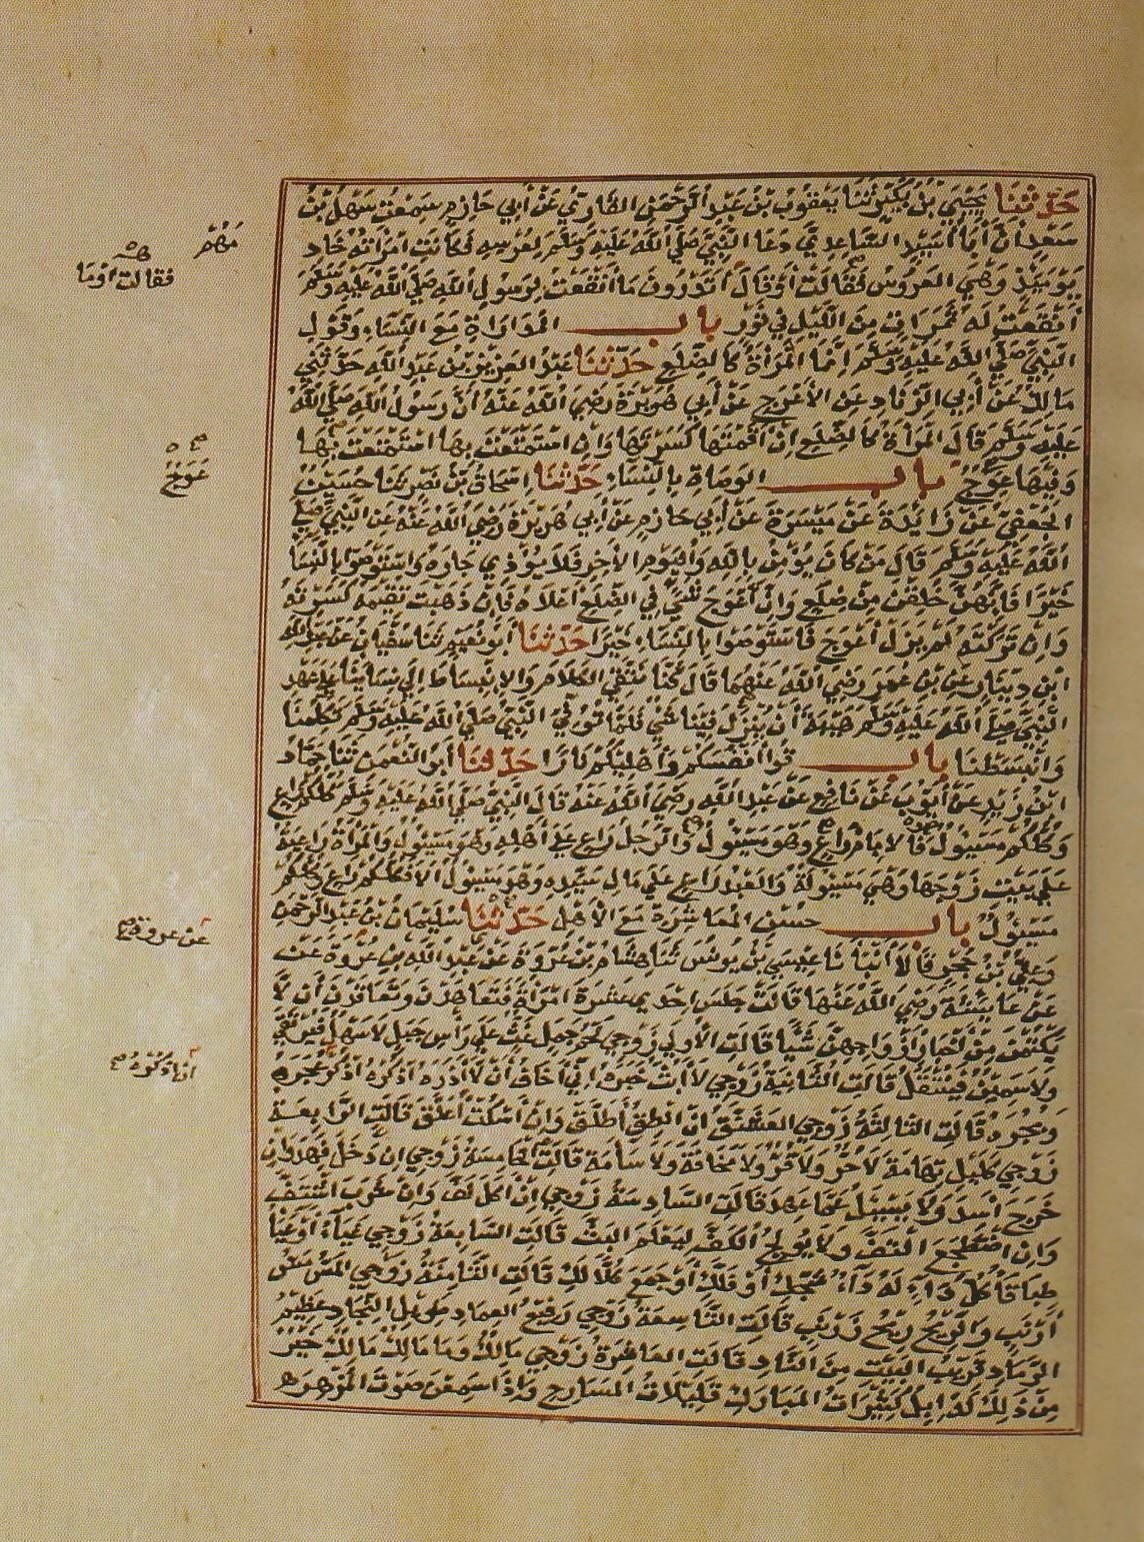 حَدَّثَنَا يَحْيَى بْنُ بُكَيْرٍ ثَنَا يَعْقُوبُ بْنُ عَبْدِ الرَّحْمَنِ القَارِيُّ عَنْ أَبِي حَازِمٍ سَمِعْتُ سَهْلَ بْنَ
سَعْدٍ أَنَّ أَبَا أُسَيْدٍ السَّاعِدِيَّ دَعَا النَّبِيَّ صَلَّى اللهُ عَلَيْهِ وَسَلَّمَ لِعُرْسِهِ فَكَانَتِ امْرَأَتُهُ خَادِ
مَهُمْ
يَوْمَئِذٍ وَهِيَ العَرُوسُ فَقَالَتْ أَوْ قَالَ أَتَدْرُونَ مَا أَنْقَعَتْ لِرَسُولِ اللهِ صَلَّى اللهُ عَلَيْهِ وَسَلَّمَ
فقالت أوْمَا
أَنْقَعَتْ لَهُ تَمَرَاتٍ مِنَ اللَّيْلِ فِي تَوْرٍ باب المُدَارَاةِ مَعَ النِّسَاءِ وَقَوْلِ
النَّبِيِّ صَلَّى اللهُ عَلَيْهِ وَسَلَّمَ إِنَّمَا المَرْأَةُ كَالضِّلَعِ حَدَّثَنَا عَبْدُ العَزِيزِ بْنُ عَبْدِ اللهِ حَدَّثَنِي
مَالِكٌ عَنْ أَبِي الزِّنَادِ عَنِ الأَعْرَجِ عَنْ أَبِي هُرَيْرَةَ رَضِيَ اللهُ عَنْهُ أَنَّ رَسُولَ اللهِ صَلَّى اللهُ
عَلَيْهِ وَسَلَّمَ قَالَ المَرْأَةُ كَالضِّلَعِ إِنْ أَقَمْتَهَا كَسَرْتَهَا وَإِنِ اسْتَمْتَعْتَ بِهَا اسْتَمْتَعْتَ بِهَا
وَفِيهَا عِوَجٌ باب الوَصَاةِ بِالنِّسَاءِ حَدَّثَنَا إِسْحَاقُ بْنُ نَصْرٍ ثَنَا حُسَيْنٌ
عَوَجٌ
الجُعْفِيُّ عَنْ زَائِدَةَ عَنْ مَيْسَرَةَ عَنْ أَبِي حَازِمٍ عَنْ أَبِي هُرَيْرَةَ رَضِيَ اللهُ عَنْهُ عَنِ النَّبِيِّ صَلَّى
اللهُ عَلَيْهِ وَسَلَّمَ قَالَ مَنْ كَانَ يُؤْمِنُ بِاللهِ وَاليَوْمِ الآخِرِ فَلاَ يُؤْذِي جَارَهُ وَاسْتَوْصُوا بِالنِّسَا
خَيْرًا فَإِنَّهُنَّ خُلِقْنَ مِنْ ضِلَعٍ وَإِنَّ أَعْوَجَ شَيْءٍ فِي الضِّلَعِ أَعْلاَهُ فَإِنْ ذَهَبْتَ تُقِيمُهُ كَسَرْتَهُ
وَإِنْ تَرَكْتَهُ لَمْ يَزَلْ أَعْوَجَ فَاسْتَوْصُوا بِالنِّسَاءِ خَيْرًا حَدَّثَنَا أَبُو نُعَيْمٍ ثَنَا سُفْيَانُ عَنْ عَبْدِ اللهِ
ابْنِ دِينَارٍ عَنِ بْنِ عُمَرَ رَضِيَ اللهُ عَنْهُمَا قَالَ كُنَّا نَتَّقِي الكَلاَمَ وَالِانْبِسَاطَ إِلَى نِسَائِنَا عَلَى عَهْدِ
النَّبِيِّ صَلَّى اللهُ عَلَيْهِ وَسَلَّمَ هَيْبَةَ أَنْ يُنْزَلَ فِينَا شَيْءٌ فَلَمَّا تُوُفِّيَ النَّبِيُّ صَلَّى اللهُ عَلَيْهِ وَسَلَّمَ تَكَلَّمْنَا
وَانْبَسَطْنَا باب قُوا أَنْفُسَكُمْ وَأَهْلِيكُمْ نَارًا حَدَّثَنَا أَبُو النُّعْمَنِ ثَنَا حَمَّاد
ابْنُ زَيْدٍ عَنْ أَيُّوبَ عَنْ نَافِعٍ عَنْ عَبْدِ اللهِ رَضِيَ اللهُ عَنْهُ قَالَ النَّبِيُّ صَلَّى اللهُ عَلَيْهِ وَسَلَّمَ كُلُّكُمْ رَاعٍ
وَكُلُّكُمْ مَسْئُولٌ فَالإِمَامُ رَاعٍ وَهُوَ مَسْئُولٌ وَالرَّجُلُ رَاعٍ عَلَى أَهْلِهِ وَهُوَ مَسْئُولٌ وَالمَرْأَةُ رَاعِيَةٌ
عَلَى بَيْتِ زَوْجِهَا وَهِيَ مَسْئُولَةٌ وَالعَبْدُ رَاعٍ عَلَى مَالِ سَيِّدِهِ وَهُوَ مَسْئُولٌ أَلاَ فَكُلُّكُمْ رَاعٍ وَكُلُّكُمْ
مَسْئُولٌ باب حُسْنِ المُعَاشَرَةِ مَعَ الأَهْلِ حَدَّثَنَا سُلَيْمَانُ بْنُ عَبْدِ الرَّحْمَنِ
وَعَلِيُّ بْنُ حُجْرٍ قَالاَ أَنْبَأَنَا عِيسَى بْنُ يُونُسَ ثَنَا هِشَامُ بْنُ عُرْوَةَ عَنْ عَبْدِ اللهِ بْنِ عُرْوَةَ عَنْ
عن عروة
عَنْ عَائِشَةَ رَضِيَ اللهُ عَنْهَا قَالَتْ جَلَسَ إِحْدَى عَشْرَةَ امْرَأَةً فَتَعَاهَدْنَ وَتَعَاقَدْنَ أَنْ لاَ
يَكْتُمْنَ مِنْ أَخْبَارِ أَزْوَاجِهِنَّ شَيْئًا قَالَتِ الأُولَى زَوْجِي لَحْمُ جَمَلٍ غَثٍّ عَلَى رَأْسِ جَبَلٍ لاَ سَهْلٍ فَيُرْتَقَى
وَلاَ سَمِينٍ فَيُنْتَقَلُ قَالَتِ الثَّانِيَةُ زَوْجِي لاَ أَبُثُّ خَبَرَهُ إِنِّي أَخَافُ أَنْ لاَ أَذَرَهُ أَذْكُرُهُ أَذْكُرُ عُجَرَهُ
وَبُجَرَهُ قَالَتِ الثَّالِثَةُ زَوْجِيَ العَشَنَّقُ إِنْ أَنْطِقْ أُطَلَّقْ وَإِنْ أَسْكُتْ أُعَلَّقْ قَالَتِ الرَّابِعَةُ
زَوْجِي كَلَيْلِ تِهَامَةَ لاَ حَرٌّ وَلاَ قُرٌّ وَلاَ مَخَافَةَ وَلاَ سَآمَةَ قَالَتِ الخَامِسَةُ زَوْجِي إِنْ دَخَلَ فَهِدَ وَإِنْ
خَرَجَ أَسِدَ وَلاَ يَسْئَلُ عَمَّا عَهِدَ قَالَتِ السَّادِسَةُ زَوْجِي إِنْ أَكَلَ لَفَّ وَإِنْ شَرِبَ اشْتَفَّ
وَإِنِ اضْطَجَعَ الْتَفَّ وَلاَ يُولِجُ الكَفَّ لِيَعْلَمَ البَثَّ قَالَتِ السَّابِعَةُ زَوْجِي غَيَايَاءُ أَوْ عَيَا
طَبَاقَا كُلُّ دَاءٍ لَهُ دَاءٌ شَجَّكِ أَوْ فَلَّكِ أَوْ جَمَعَ كُلًّا لَكِ قَالَتِ الثَّامِنَةُ زَوْجِي المَسُّ مَسُّ
أَرْنَبٍ وَالرِّيحُ رِيحُ زَرْنَبٍ قَالَتِ التَّاسِعَةُ زَوْجِي رَفِيعُ العِمَادِ طَوِيلُ النِّجَادِ عَظِيمُ
الرَّمَادِ قَرِيبُ البَيْتِ مِنَ النَّادِ قَالَتِ العَاشِرَةُ زَوْجِي مَالِكٌ وَمَا مَالِكٌ مَالِكٌ خَيْرٌ
مِنْ ذَلِكَ لَهُ إِبِلٌ كَثِيرَاتُ المَبَارِكِ قَلِيلاَتُ المَسَارِحِ وَإِذَا سَمِعْنَ صَوْتَ المِزْهَرِ